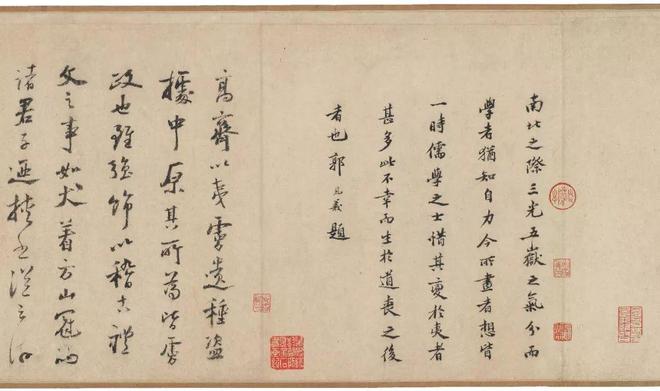 南北之際三光五嶽之氣分而
學者猶知自力今所畫者想皆
一時儒學之士惜其變於夷者
甚多此不幸而生於道喪之後
者也郭見義題
高齊以夷虜遺種盜
據中原其所為皆虜
政也雖強飾以稽古禮
文之事如犬着方山冠而
諸君子迺挾書從之游